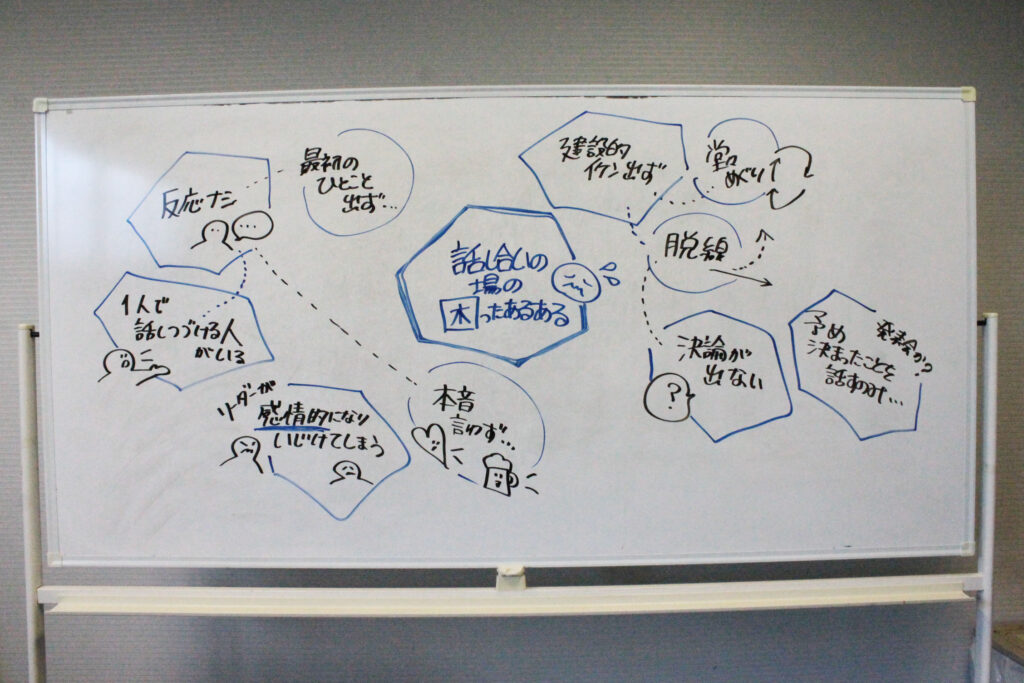 反応ナシ
最初の
ひとこと
出ず…
1人で
話しつづける人
がいる
リーダーが
感情的になり
いじけてしまう
本音
言わず…
話し合いの
場の
困ったあるある
建設的
イケン出ず
堂々
めぐり
脱線
決論が
出ない
?
予め
決まったことを
話すのみ…
発表会か?